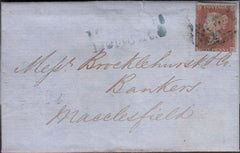 Messrs Brocklehurst & Co
Bankers
Macclesfield